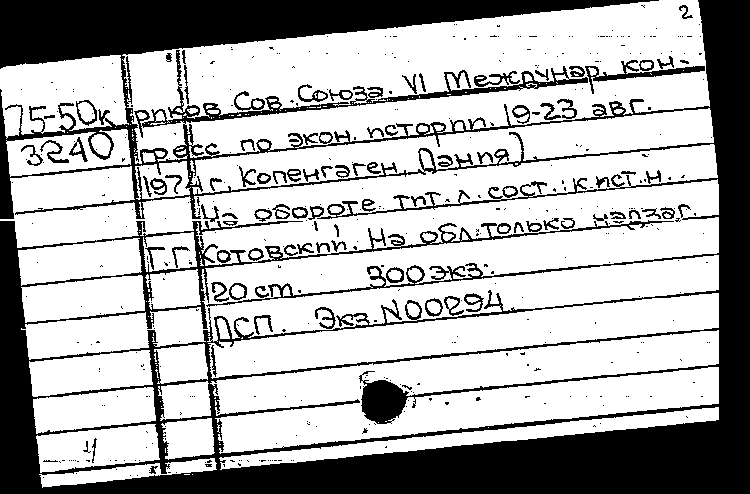 2
75-50к риков Сов. Союза. VI Междунар. кон-
3240 гресс по экон. истории. 19-23 авг.
1974 г. Копенгаген, Дания).
На обороте тит. л. сост.: к.ист.н.
Г.Г. Котовский. На обл. только надзаг.
20 ст. 300 экз.
ДСП. Экз. N00294.